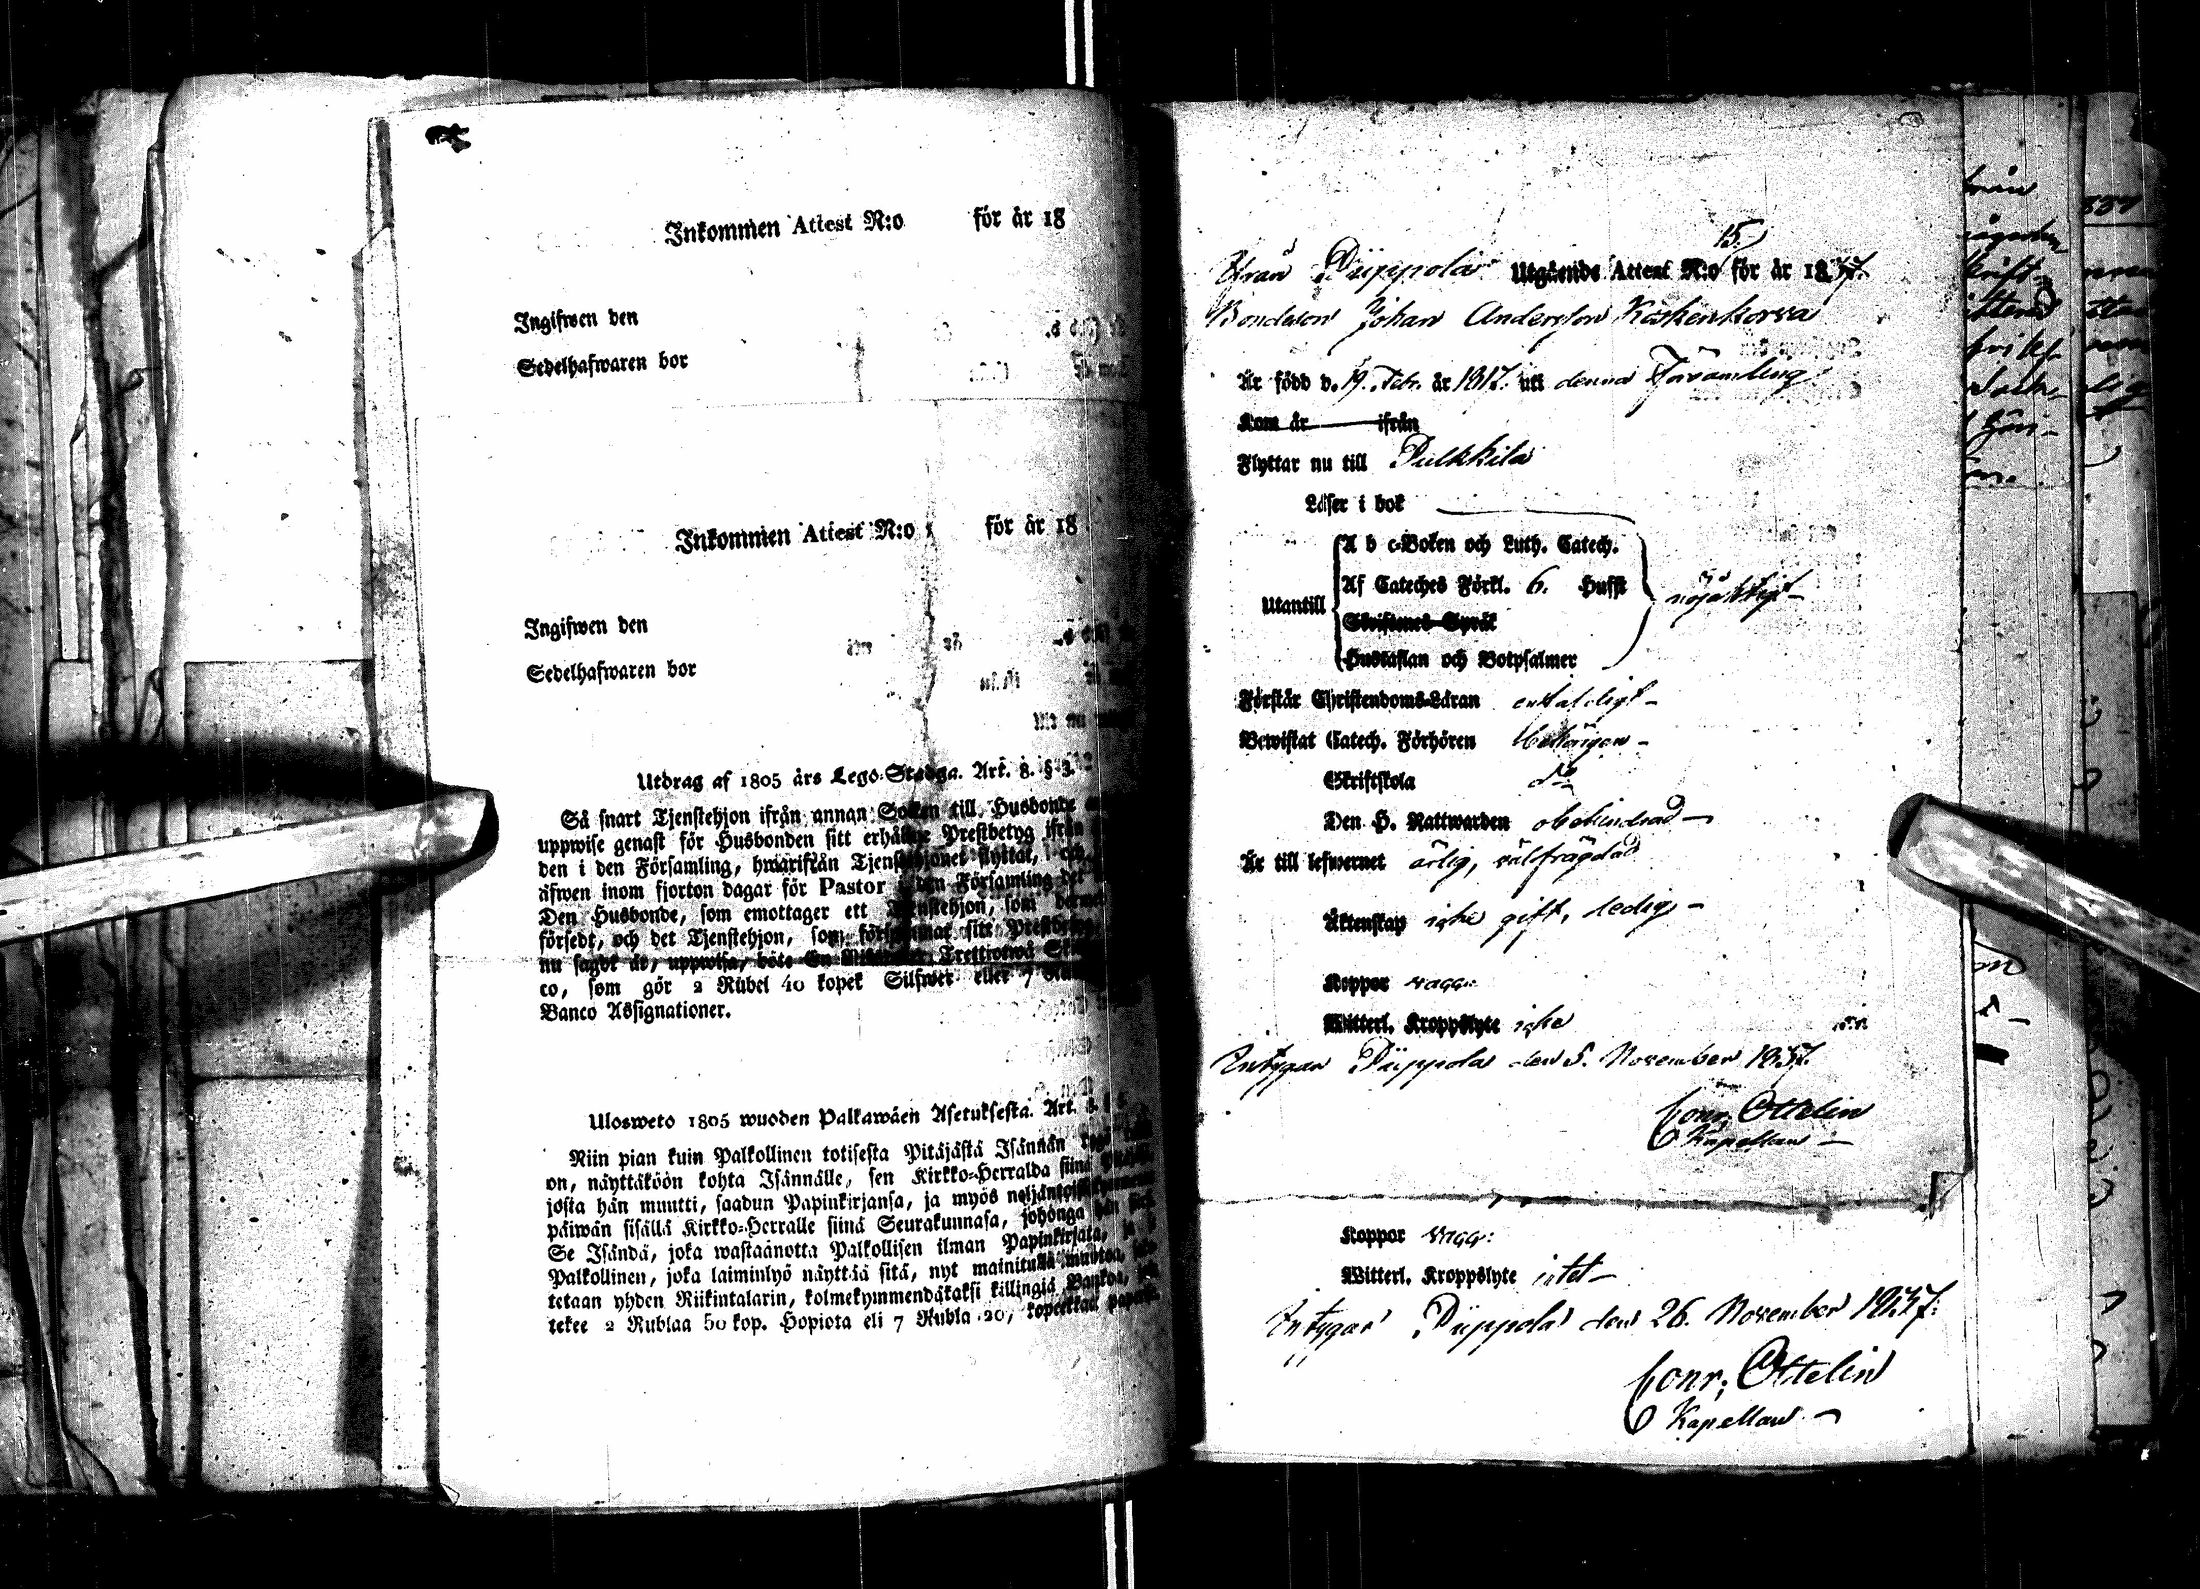 Inkommen Attest N:o för år 18
Ingifwen den
Sedelhafwaren bor
Inkommen Attest N:o för år 18
Ingifwen den
Sedelhafwaren bor
Utdrag af 1805 års Lego-Stadga. Art. 8. § 3.
Så snart Tjenstehjon ifrån annan Socken till Husbonde
uppwise genast för Husbonden sitt erhållne Prestbetyg ifrån
den i den Församling, hwarifrån Tjenstehjonet flyttat, och
äfwen inom fjorton dagar för Pastor i den Församling det
Den Husbonde, som emottager ett Tjenstehjon, som dermed
försedt, och det Tjenstehjon, som försummat sitt Prestbetyg
nu sagdt är, uppwisa, böte En Riksdaler Trettiotwå Sk
co, som gör 2 Rubel 40 kopek Silfwer eller 7 Ru
Banco Assignationer.
Ulosweto 1805 wuoden Palkawäen Asetuksesta. Art. 8. §
Niin pian kuin Palkollinen toisesta Pitäjästä Isännän
on, näyttäköön kohta Isännälle, sen Kirkko-Herralda siinä
josta hän muutti, saadun Papinkirjansa, ja myös neljäntoistkymmenen
päiwän sisällä Kirkko-Herralle siinä Seurakunnasa, johonga hän
Se Isändä, joka wastaanotta Palkollisen ilman Papinkirjata, ja
Palkollinen, joka laiminlyö näyttää sitä, nyt mainitulla muotoa,
tetaan yhden Riikintalarin, kolmekymmendäkaksi killingiä Bankoa,
tekee 2 Rublaa 50 kop. Hopiota eli 7 Rubla 20, kopeekkaa
15.
Från Pippola Utgående Attest N:o för år 1837.
Bondeson Johan Andersson Koskenkorva
Är född d. 19. Febr. år 1817. uti denna Församling
Kom år ifrån
Flyttar nu till Pulkkila
Läser i bok
A b c-Boken och Luth. Catech.
Af Cateches Förkl. 6. Hufst
Utantill nöjaktigt
Skriftenes Språk
Hustaflan och Botpsalmer
Förstår Christendoms-Läran enfaldigt
Bewistat Catech. Förhören behörigen
Skriftskola do
Den H. Nattwarden obehindrad
Är till lefwernet ärlig, välfrägdad
Äktenskap icke gift, ledig
Koppor vacc:
Witterl. Kroppslyte icke
Intygar Pippola den 5. November 1837.
Conr. Ottelin
Kapellan
Koppor vacc:
Witterl. Kroppslyte intet
Intygar Pippola den 26. November 1837.
Conr. Ottelin
Kapellan